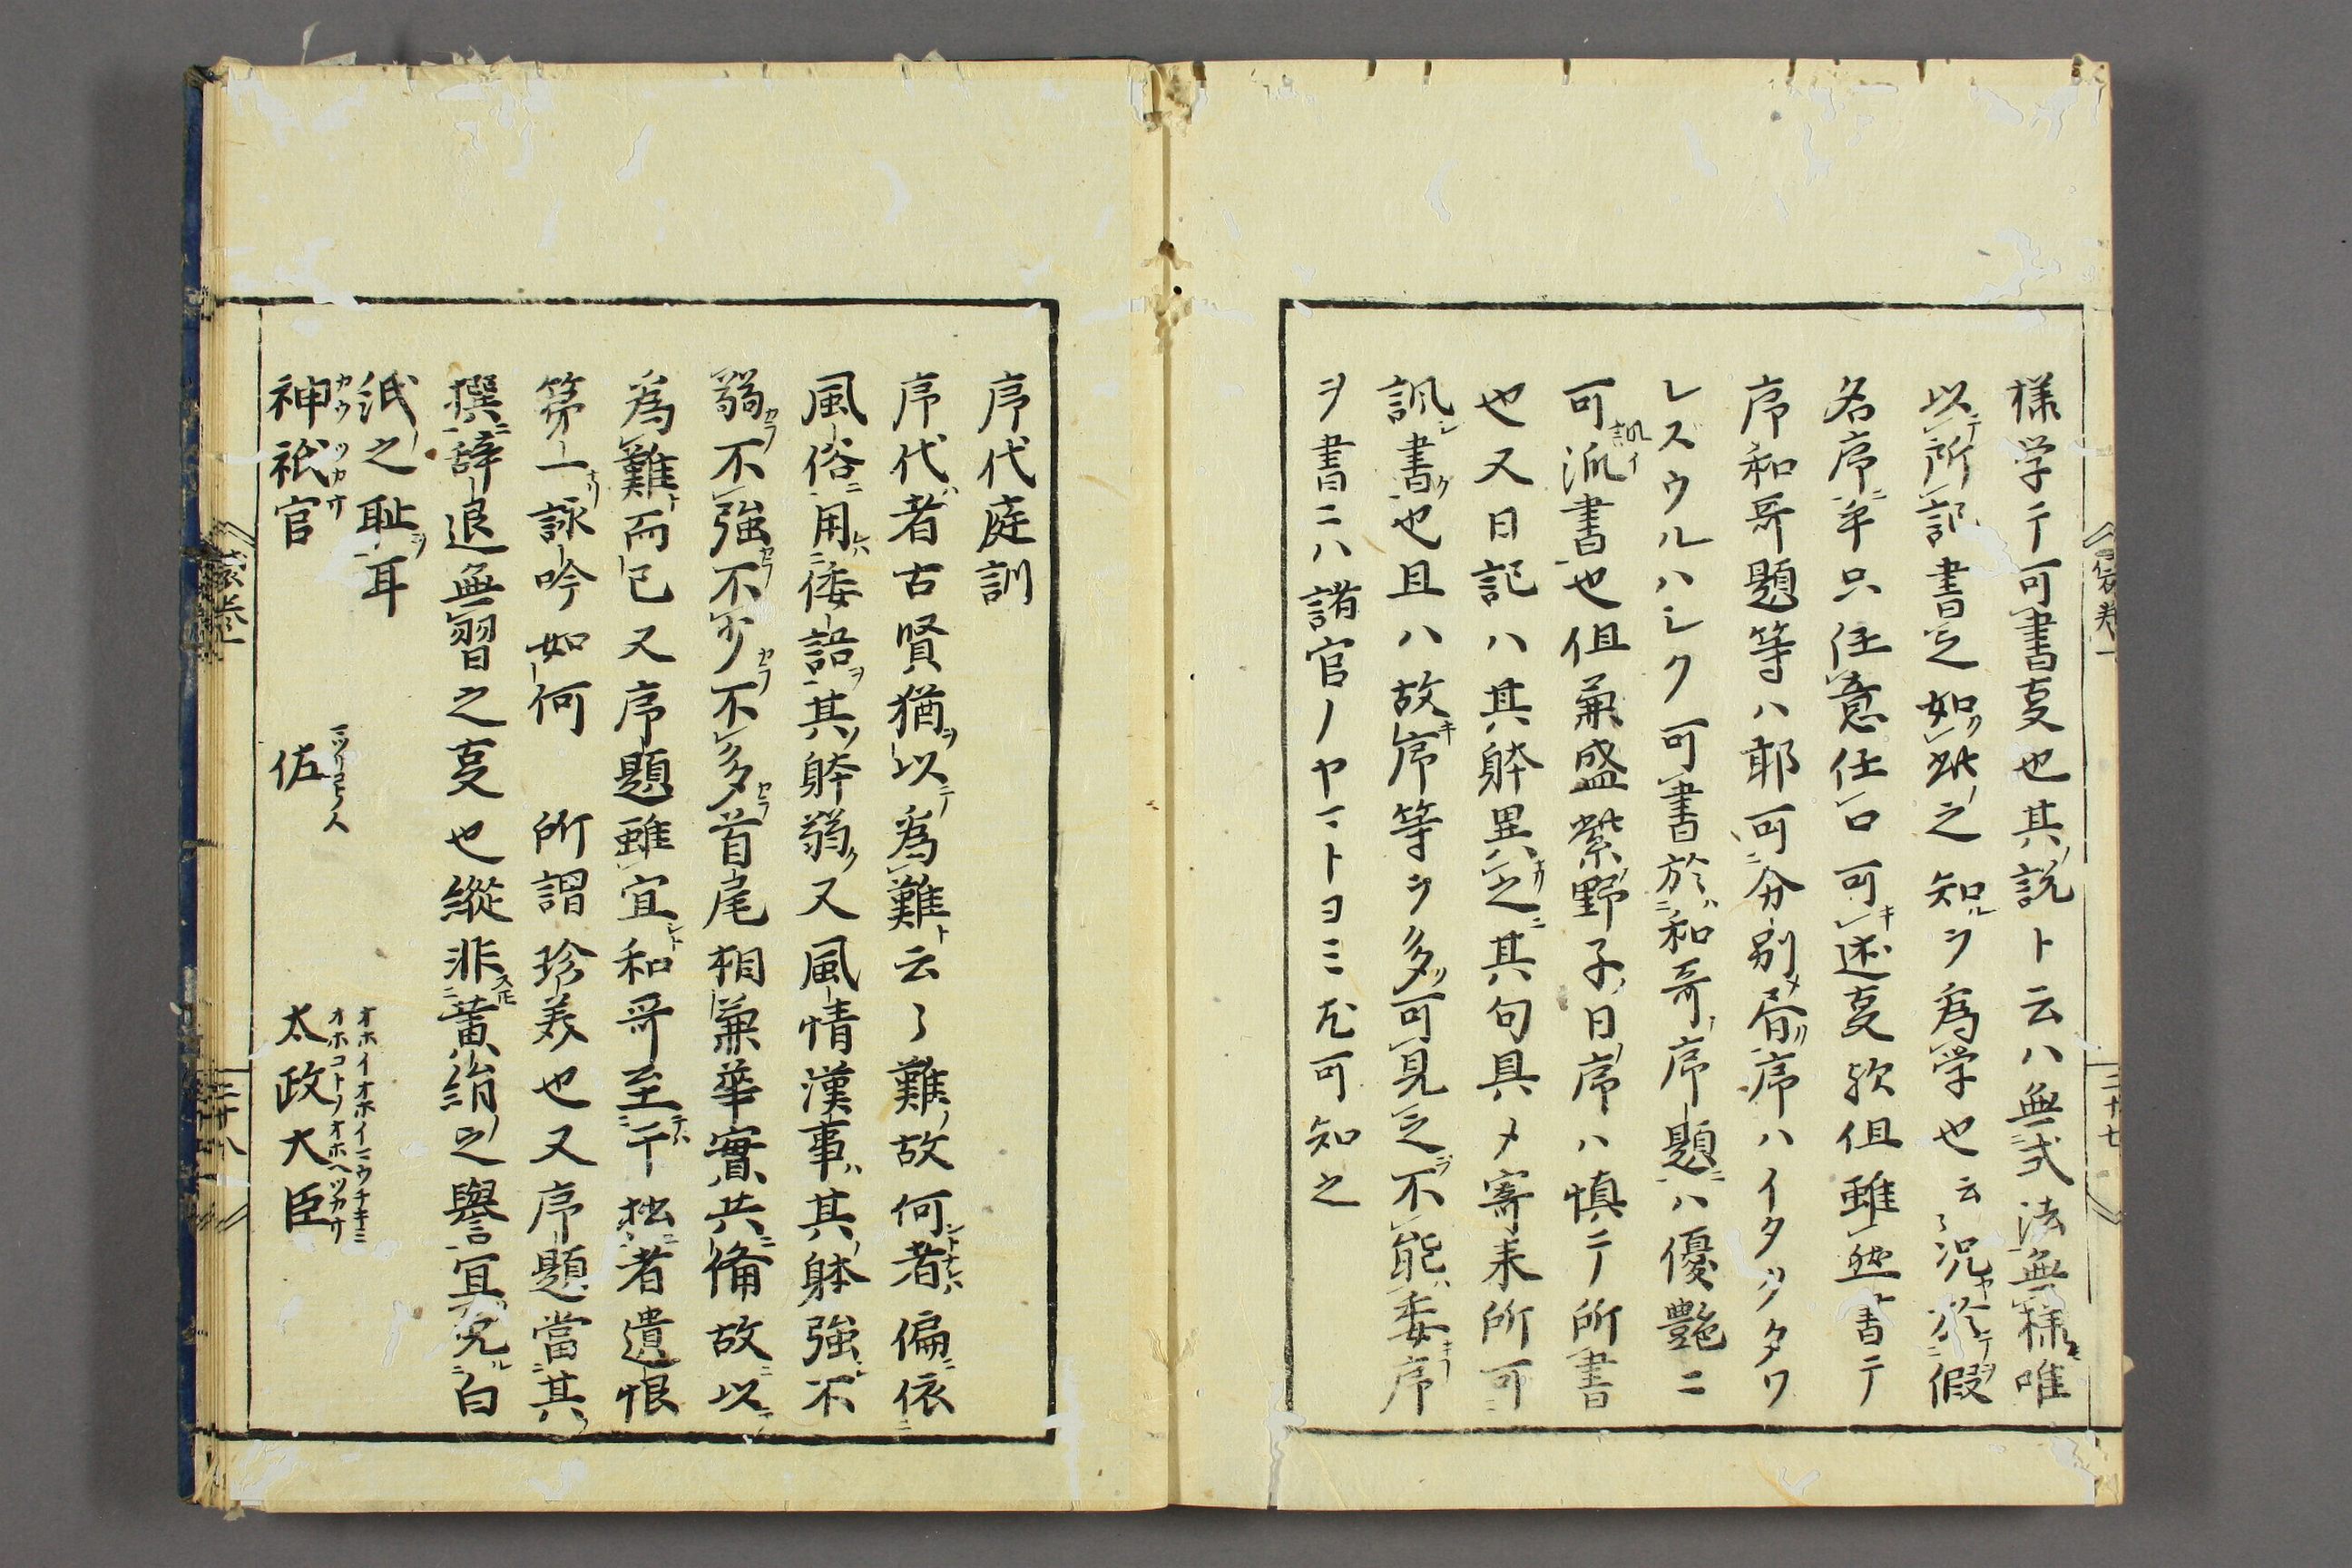 様学テ可書㕝也其説ト云ハ無式法無様唯
以所記書之如此之知ヲ為学也云々況於假
名序乎只任意任口可述㕝歟但雖然書テ
序和哥題等ハ耶可分別㕝序ハイタクタワ
レズウルハシク可書於和哥序題ハ優艶ニ
可泒書也但兼盛紫野子日序ハ慎テ所書
也又日記ハ其躰異之其句具メ寄来所可
訊書也且ハ故序等ヲ多可見之不能委序
ヲ書ニハ諸官ノヤマトヨミ尤可知之
序代庭訓
序代者古賢猶以為難云々難故何者偏依
風俗用倭語其躰弱又風情漢事其躰強不
弱不強不少不多首尾相兼華實共備故以
為難而已又序題雖宜和哥至于拙者遺恨
第一詠吟如何 所謂珍美也又序題當其
撰辞退無習之㕝也縱非黄絹之譽冝免白
紙之耻耳
神祇官 佐 太政大臣
カウツカサ マツリコトノ人 オホイオホイマウチキミ
オホコトノオホヘツカサ
二十七
二十八